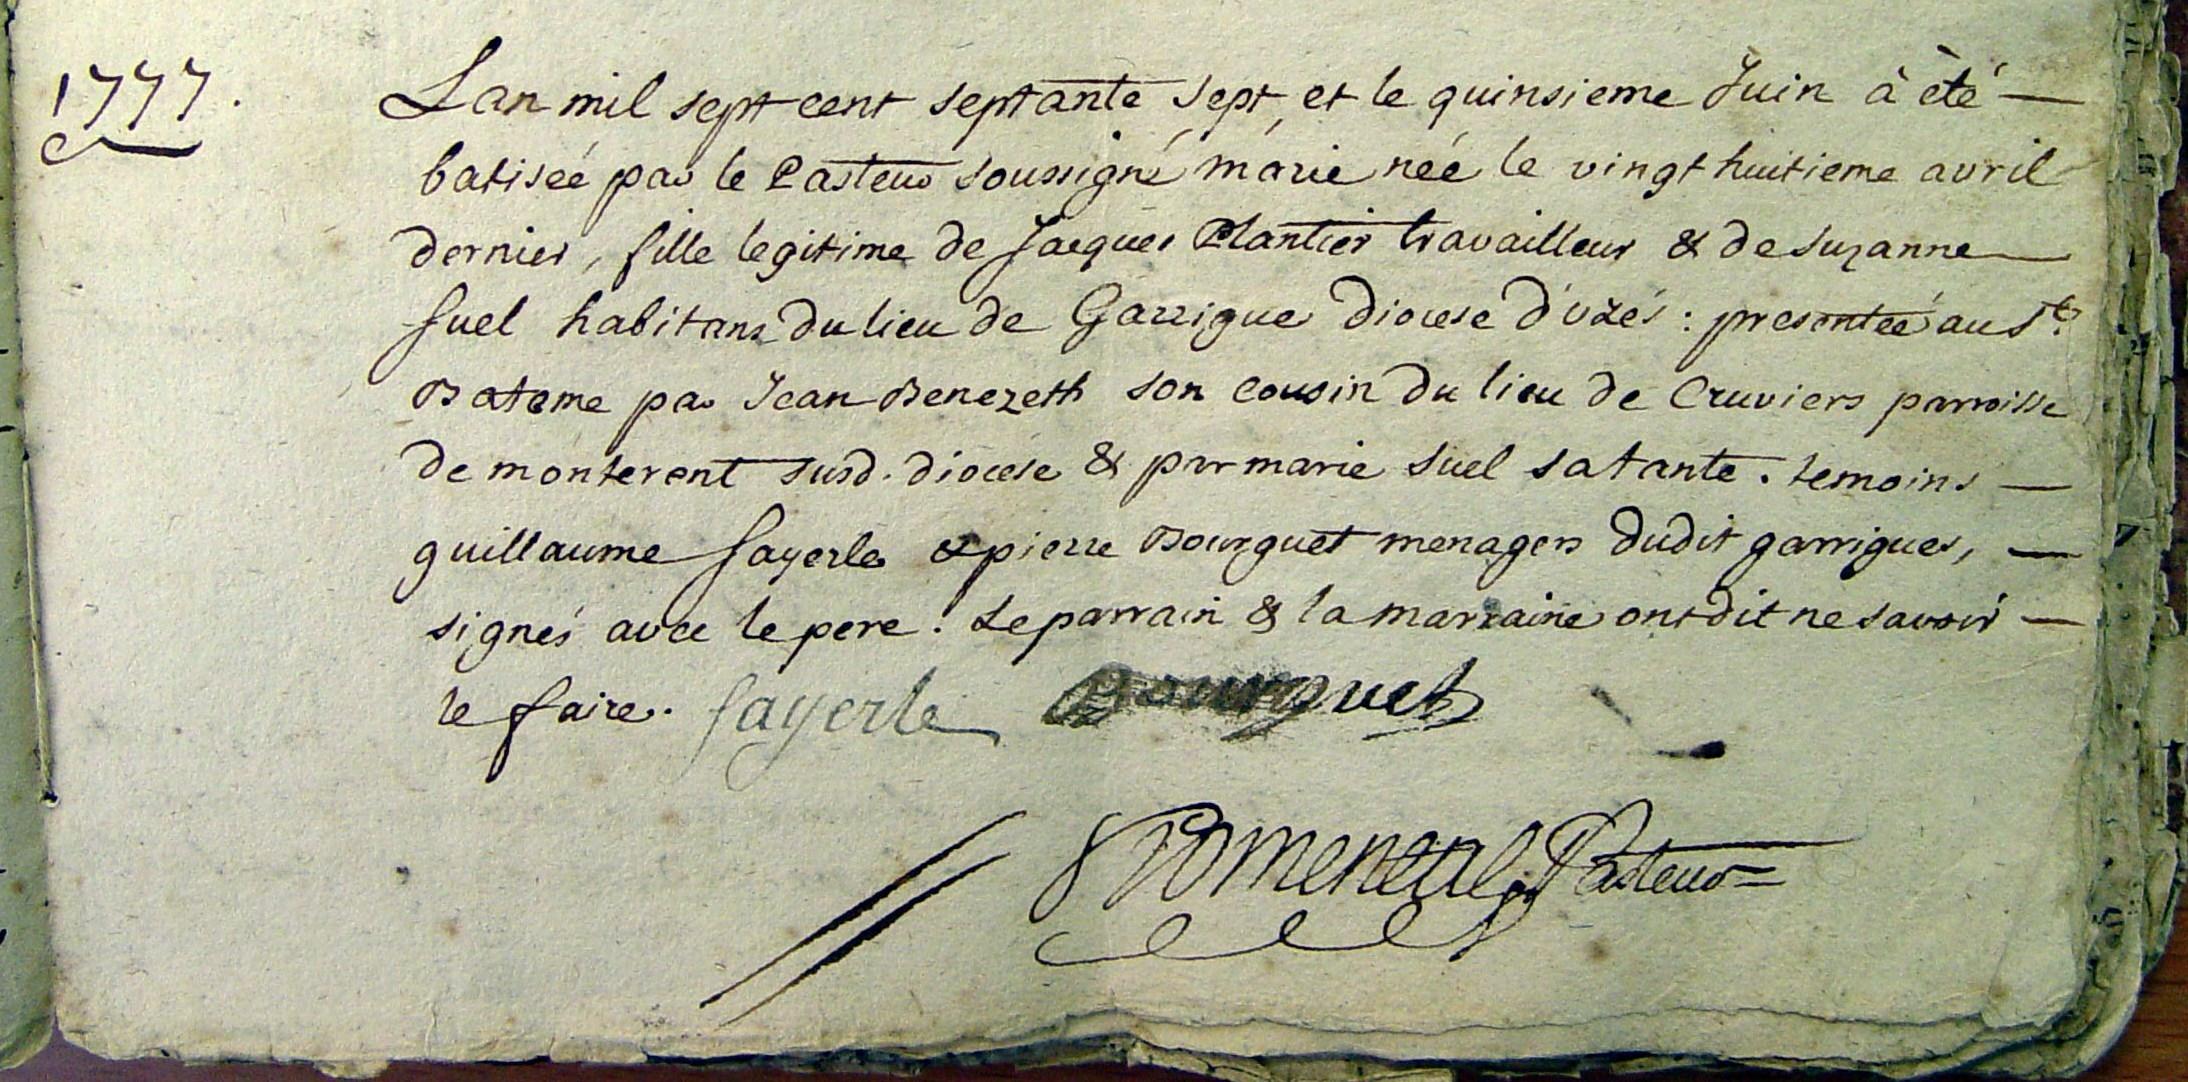 1777.
Lan mil sept cent septante sept, et le quinsieme Juin à èté
batiseé par le Pasteur soussigné marie neé le vingt huitieme avril
dernier, fille legitime de Jacques Plantier travailleur & de suzanne
suel habitans du lieu de Garrigue diocese d'uzés : presenteé au St.
Bateme par Jean Benezeth son cousin du lieu de Cruviers parroisse
de monterent susd. diocese & par marie suel sa tante. temoins
guillaume fayerle & pierre Bourguet menagers dudit garrigues,
signés avec le pere. Le parrain & la marraine ont dit ne savoir
le faire. fayerle Bourguet
Pasteur